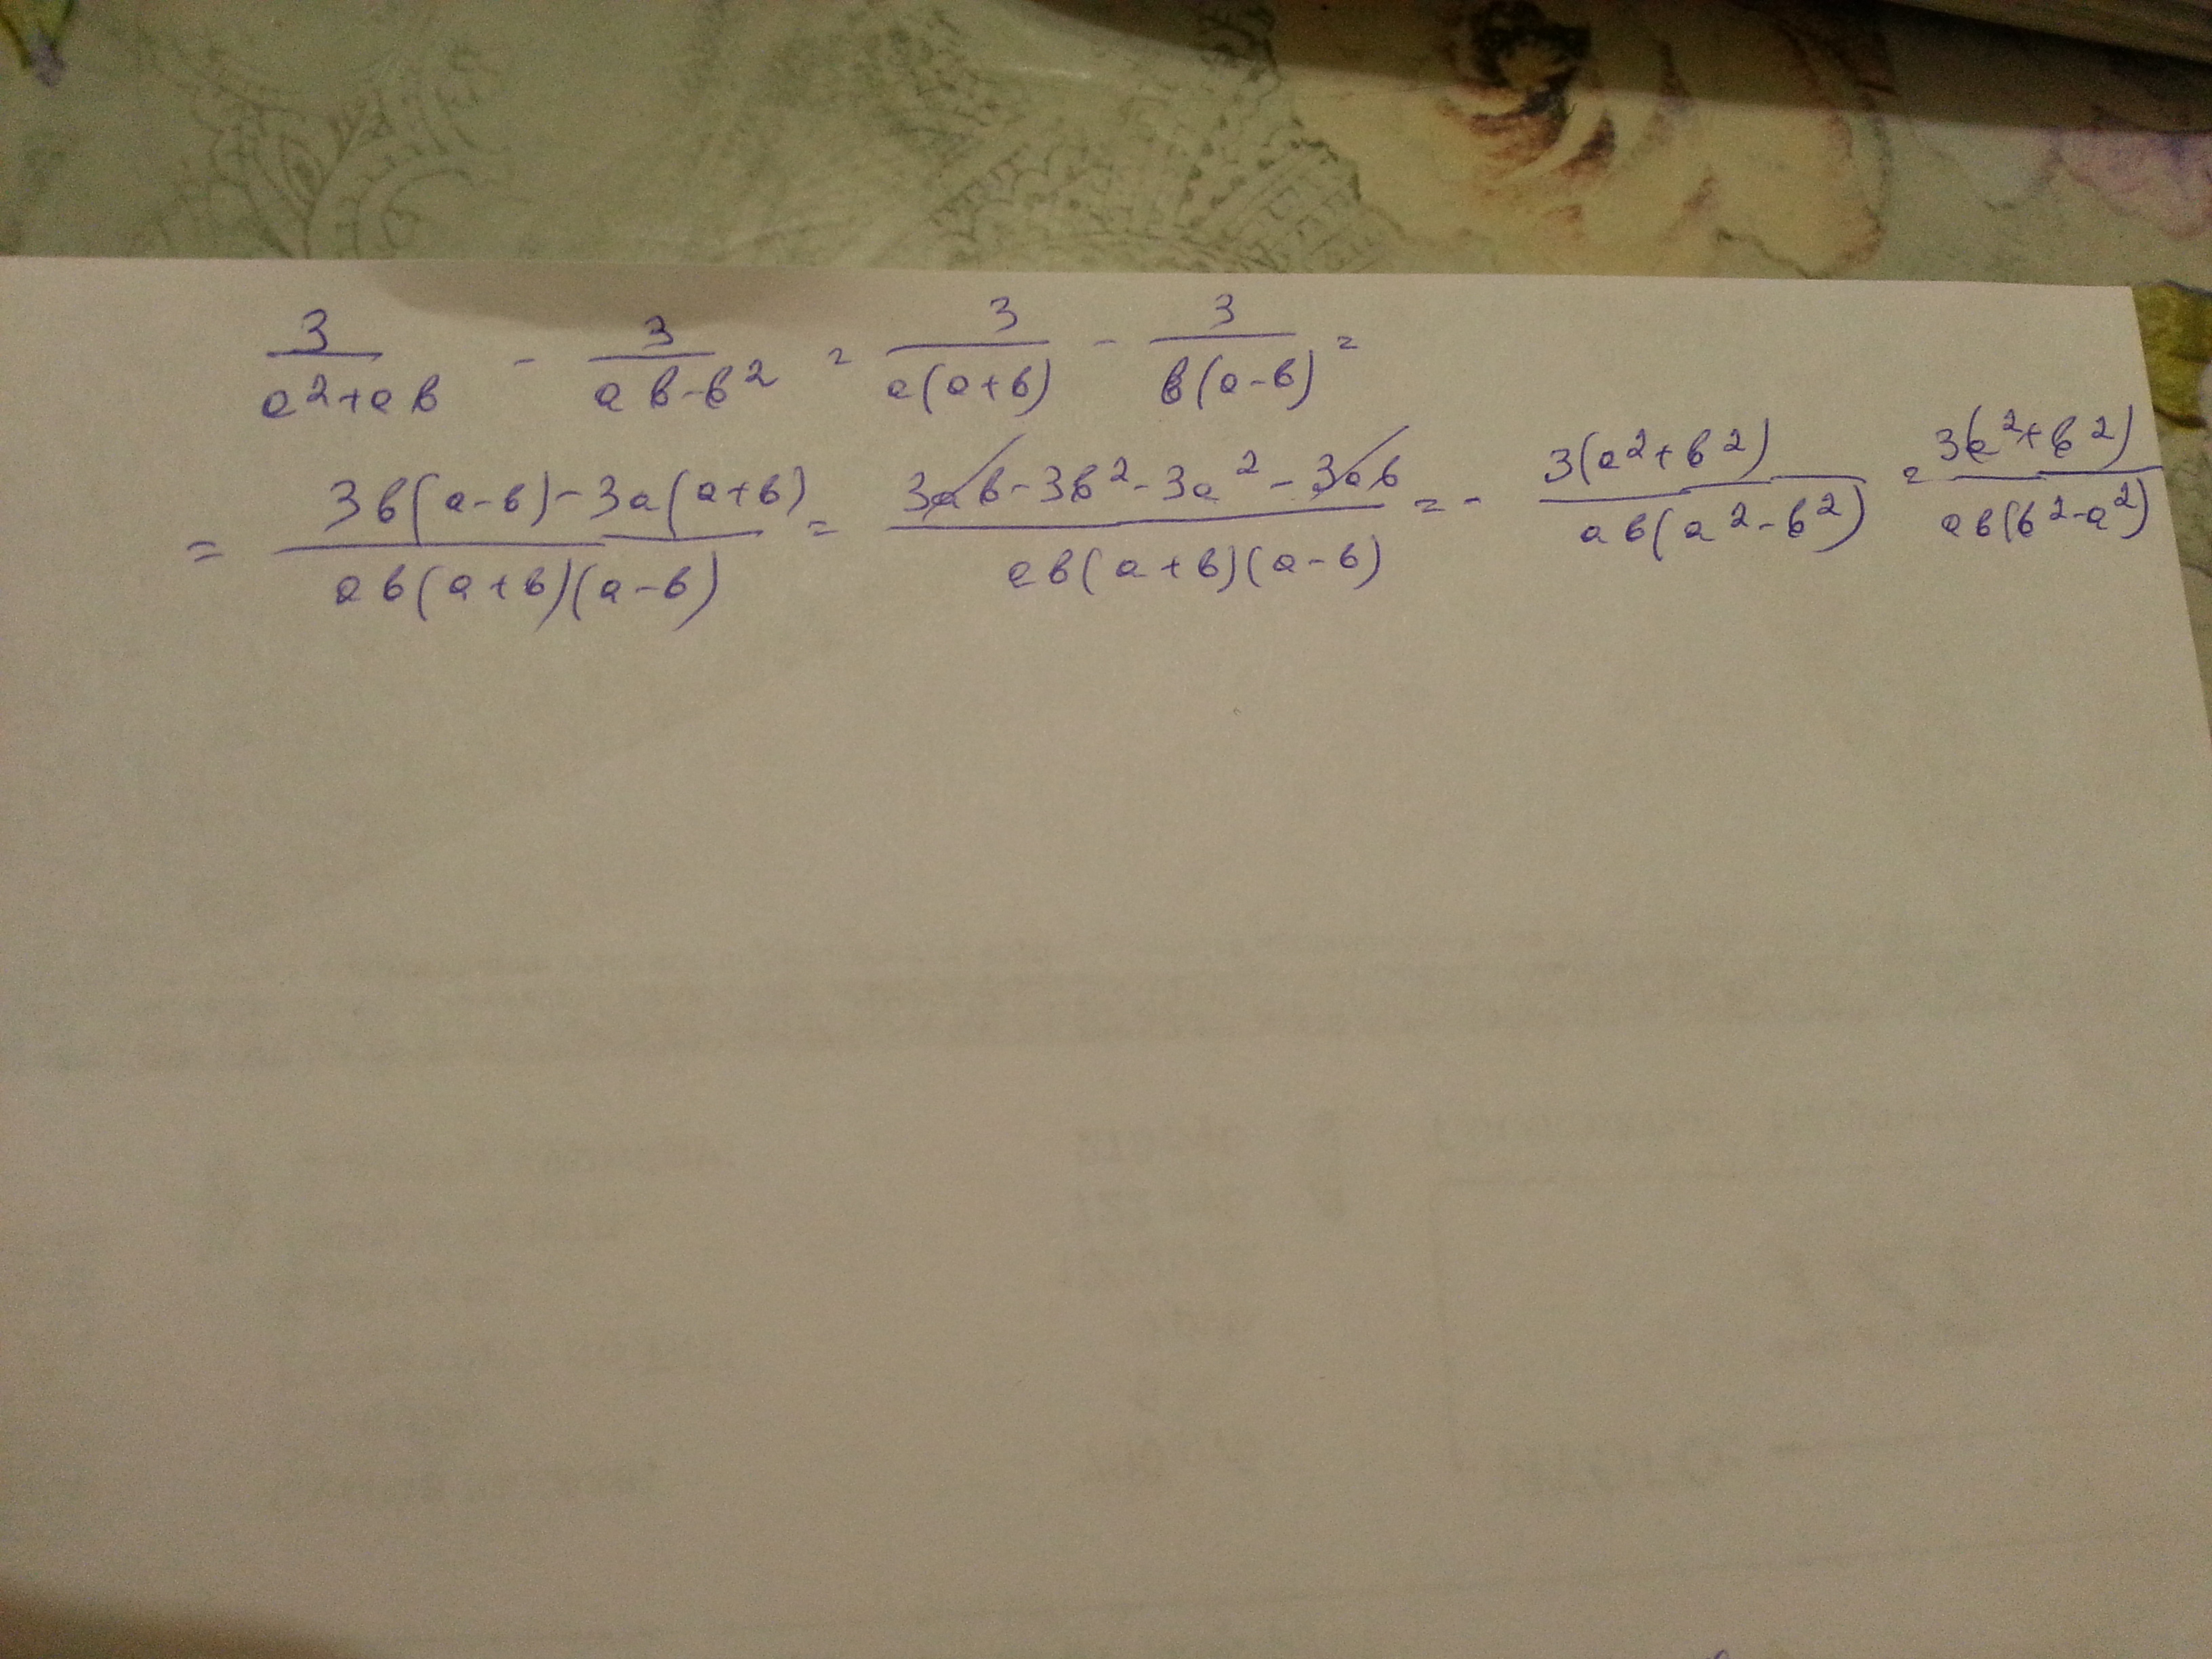 3/(a²+ab) - 3/(ab-b²) = 3/(a(a+b)) - 3/(b(a-b)) =
= (3b(a-b)-3a(a+b))/(ab(a+b)(a-b)) = (3ab-3b²-3a²-3ab)/(ab(a+b)(a-b)) = - 3(a²+b²)/(ab(a²-b²)) = 3(a²+b²)/(ab(b²-a²))